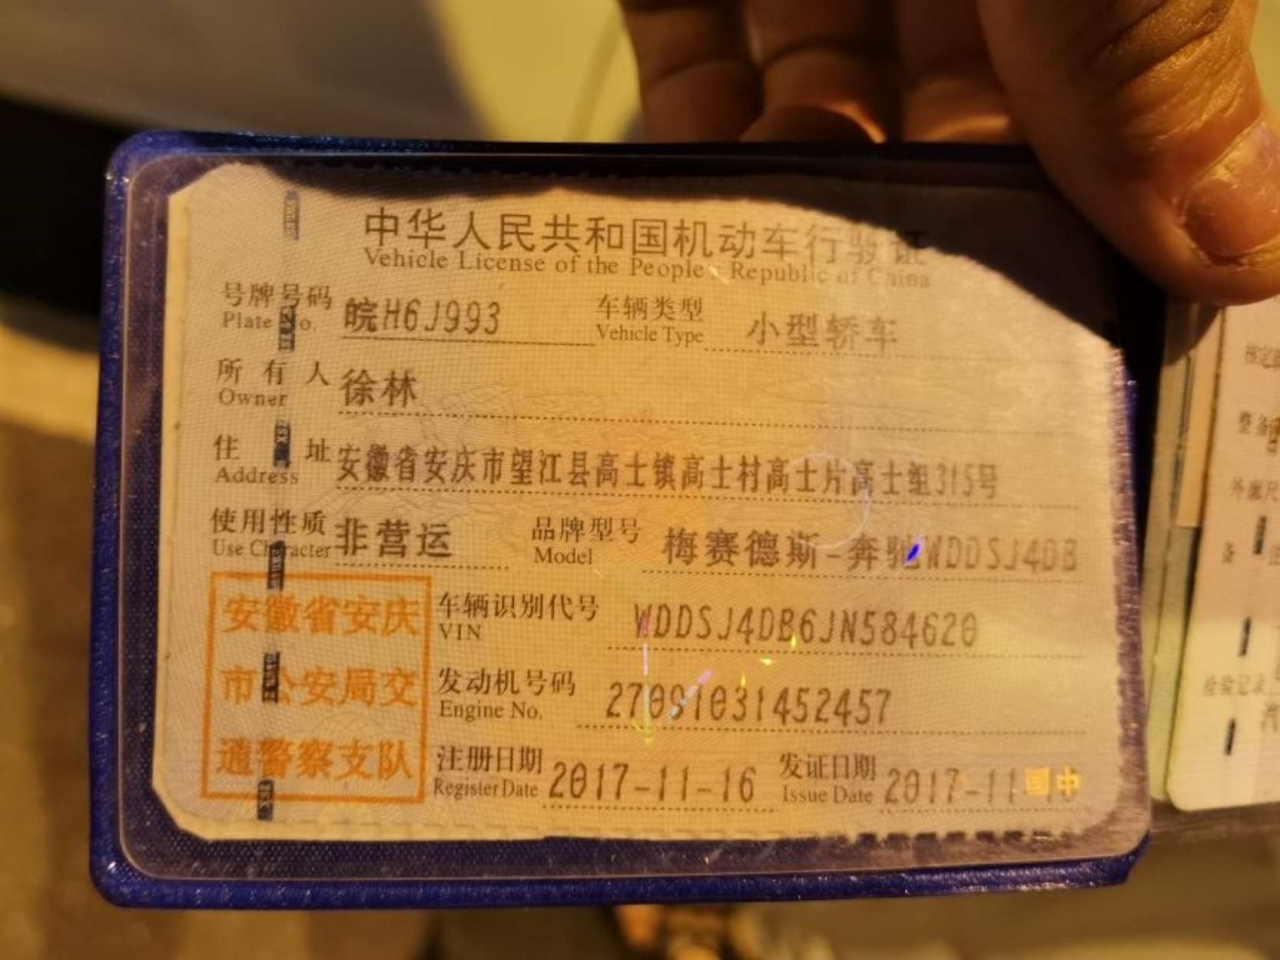 中华人民共和国机动车行驶证
Vehicle License of the People's Republic of China
号牌号码 皖H6J993 车辆类型 小型轿车
Plate No. Vehicle Type
所有人 徐林
Owner
住址 安徽省安庆市望江县高士镇高士村高士片高士组315号
Address
使用性质 非营运 品牌型号 梅赛德斯-奔驰WDDSJ4DB
Use Character Model
安徽省安庆
市公安局交
通警察支队
车辆识别代号 WDDSJ4DB6JN584620
VIN
发动机号码 27091031452457
Engine No.
注册日期 2017-11-16 发证日期 2017-11-16
Register Date Issue Date
中国
整备
外廓尺
备
检验记录